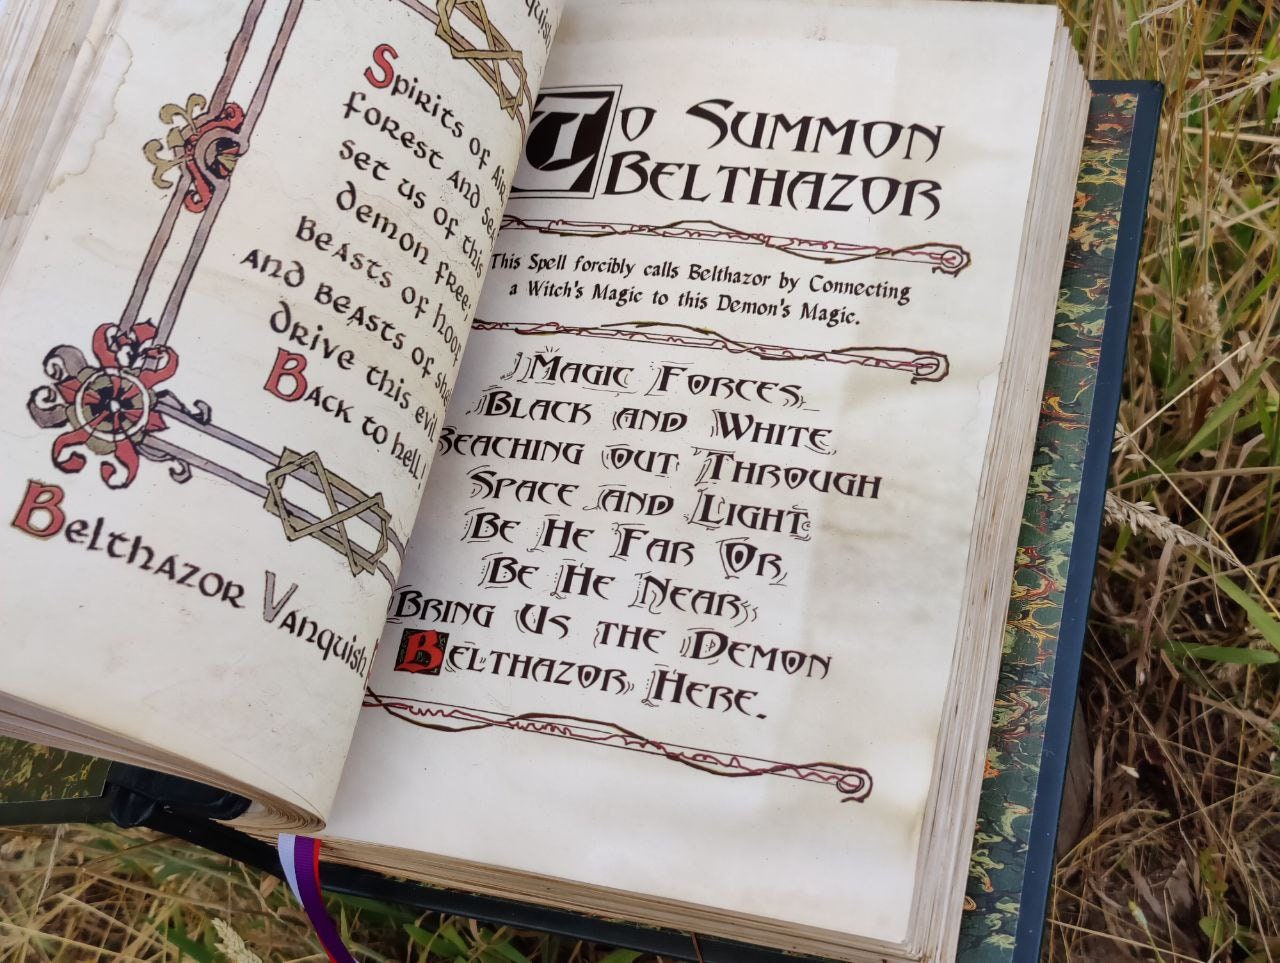 Spirits of Air,
forest and sea,
set us of this
demon free,
Beasts of hoof
and beasts of
drive this evil
Back to hell!
Belthazor Vanquish
To Summon
Belthazor
This Spell forcibly calls Belthazor by Connecting
a Witch's Magic to this Demon's Magic.
Magic Forces
Black and White,
Reaching out Through
Space and Light,
Be He Far Or
Be He Near,
Bring Us the Demon
Belthazor Here.